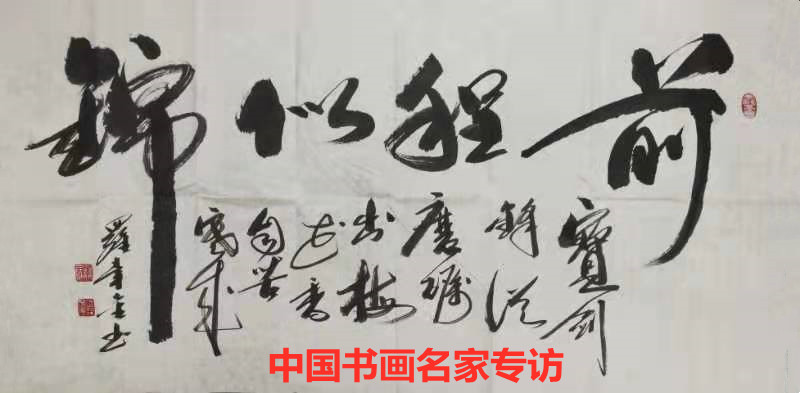 前程似錦
寶劍
鋒從
磨礪
出梅
花香
自苦
寒來
羅 书
中国书画名家专访